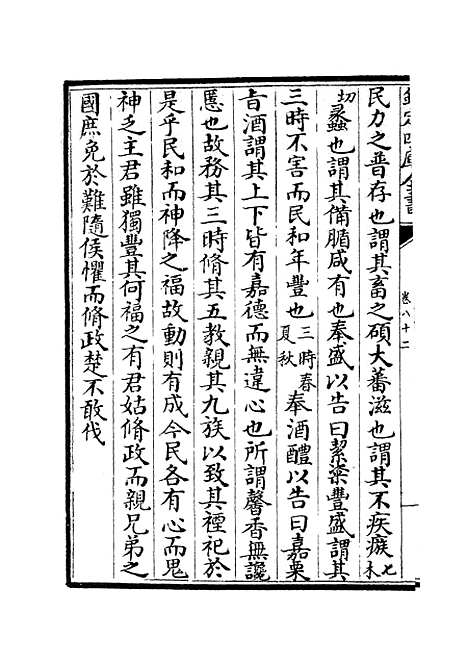 欽定四庫全書
卷八十二
民力之普存也謂其畜之碩大蕃滋也謂其不疾瘯七木
切蠡也謂其備腯咸有也奉盛以告曰絜粢豐盛謂其
三時不害而民和年豐也三時春夏秋奉酒醴以告曰嘉栗
旨酒謂其上下皆有嘉德而無違心也所謂馨香無讒
慝也故務其三時脩其五教親其九族以致其禋祀於
是乎民和而神降之福故動則有成今民各有心而鬼
神乏主君雖獨豐其何福之有君姑脩政而親兄弟之
國庶免於難隨侯懼而脩政楚不敢伐